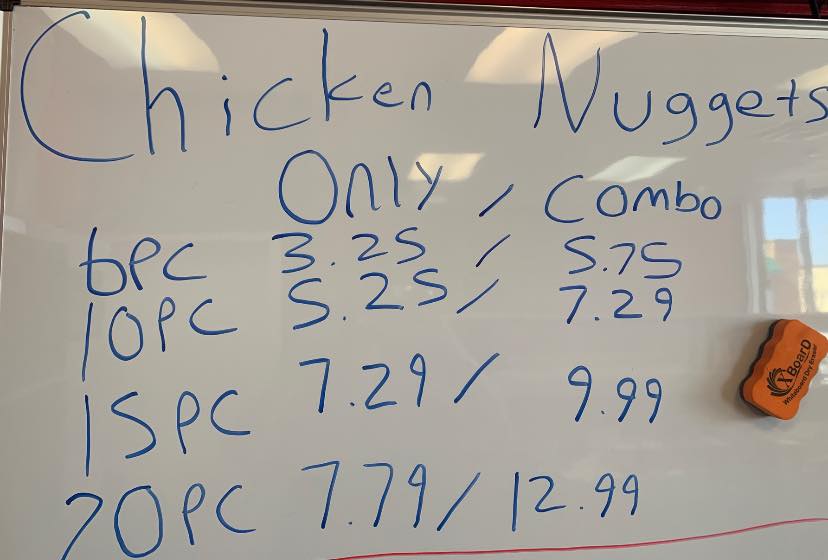 Chicken Nuggets
Only / Combo
6PC 3.25 / 5.75
10PC 5.25 / 7.29
15PC 7.29 / 9.99
20PC 7.79 / 12.99
XBoarD
Whiteboard Dry Eraser